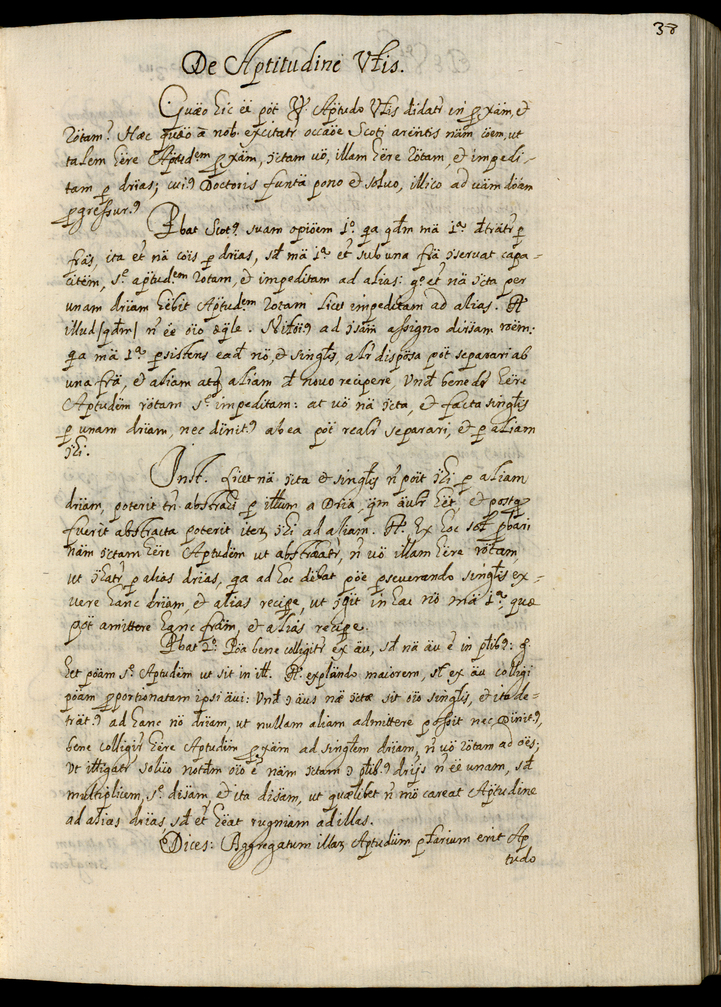 38
De Aptitudine Vlis.
Quæo hic ēē pōt Aptudo Vlis didatr in pxäm, et
rötam? Hæc quæo a nob. excitatr occäoe Scoti arentis näm cöem, ut
talem hëre Aptudem pxäm, ɔctam uö, illam hëre rötam, et impedi-
tam p drias; cuiꝰ Doctoris funtä pono et soluo, illico ad uäm döäm
pgressurꝰ
Pbat Scotꝰ suam opiöem 1º. qa qdm mä 1ª. dträtr p
fräs, ita et nä cöis p drias, sd mä 1ª et sub una frä ɔseruat capa-
citëm, sº aptudem rotam, et impeditam ad alias: gº et nä ɔcta per
unam driam hëbit Aptudem rotam licet impeditam ad alias. Rº
illud /qdm/ n ëe öio æqle. Nihöiꝰ ad ɔsäm assigno dirsam röem:
qa mä 1ª psistens eäd nö, et singlis, alr disposta pöt separari ab
una frä, et aliam atq aliam d nouo recipere, Vnd bene dr hëre
Aptudëm rötam sº impeditam: at uö nä ɔcta, et facta singlis
p unam driam, nec dinitꝰ ab ea pöt realr separari, et p aliam
ɔhi.
Inst. licet nä ɔcta et singlis n pöit ɔhi p aliam
driam, poterit tn abstrahi p illum a Dria, qm äulr hët, et postq
fuerit abstracta poterit iter ɔhi ad aliam. Rº. Ex hoc sol pbari
näm ɔctam hëre Aptudëm ut abstraatr, n uö illam hëre rötam,
ut ɔhatr p alias drias, qa ad hoc debat pöe pseuerando singlis ex-
uere hanc driam, et alias recipe, ut ɔgit in hac nö mä 1ª. quæ
pöt amittere hanc främ, et aliäs recipe.
Pbat 2º. Pöa bene colligitr ex äu, sd nä äu ë in plibꝰ: gº
het pöam sº Aptudëm ut sit in ill. Rº. explando maiorem, sº ex äu colligi
pöam pportionatam ipsi äui: Vnd ɔ äus nä ɔctæ sit öio singlis, et ita de-
trätꝰ ad hanc nö driam, ut nullam aliam admittere possit nec Dinitꝰ,
bene colligitr hëre Aptudëm pxäm ad singlem driam, n uö rötam ad öes;
Vt illigatr soluio notdm öio ë näm ɔctam ɔ plibꝰ drijs n ëe unam, sd
multiplicem, sº disäm et ita disäm, ut quælibet n mö careat Aptudine
ad alias driäs, sd et hëat rugniam ad illas.
Dices: Aggregatum illar Aptudum plarium erit Ap
tudo